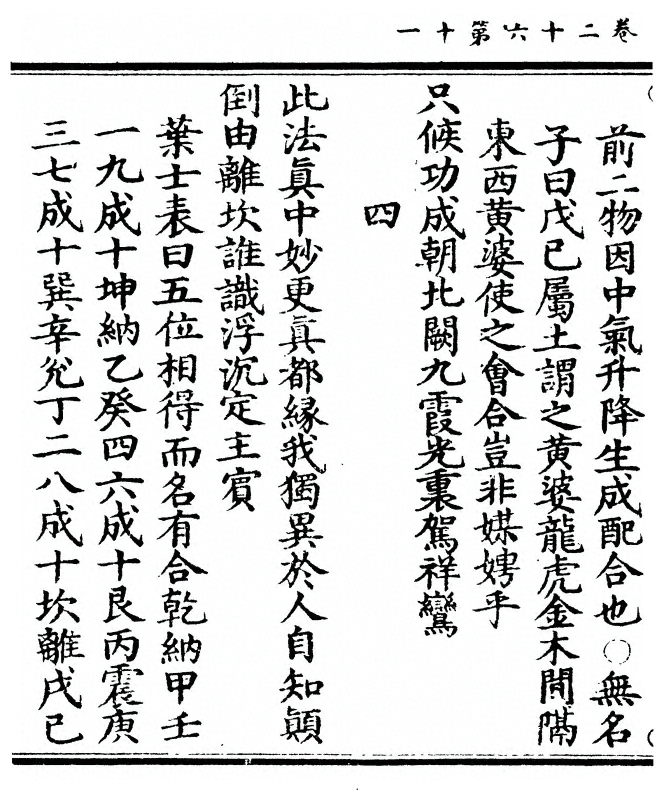 卷二十六第十一
前二物因中氣升降生成配合也○無名
子曰戊已屬土謂之黄婆龍虎金木間隔
東西黄婆使之會合豈非媒娉乎
只候功成朝北闕九霞光裏駕祥鸞
四
此法眞中妙更眞都緣我獨異於人自知顚
倒由離坎誰識浮沉定主賓
葉士表曰五位相得而名有合乾納甲壬
一九成十坤納乙癸四六成十艮丙震庚
三七成十巽辛兊丁二八成十坎離戊已